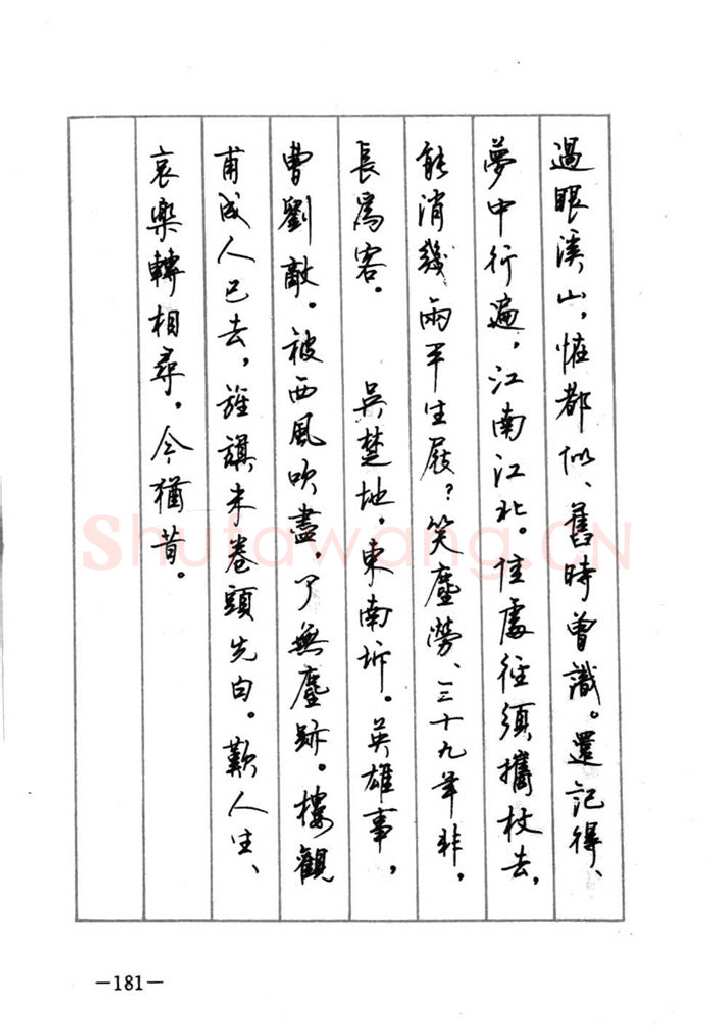 過眼溪山，怪都似、舊時曾識。還記得、
夢中行遍，江南江北。佳處徑須攜杖去，
能消幾兩平生屐？笑塵勞、三十九年非，
長爲客。　吳楚地，東南坼。英雄事，
曹劉敵。被西風吹盡，了無塵跡。樓觀
甫成人已去，旌旗未卷頭先白。歎人生、
哀樂轉相尋，今猶昔。
Shufawang.CN
—181—